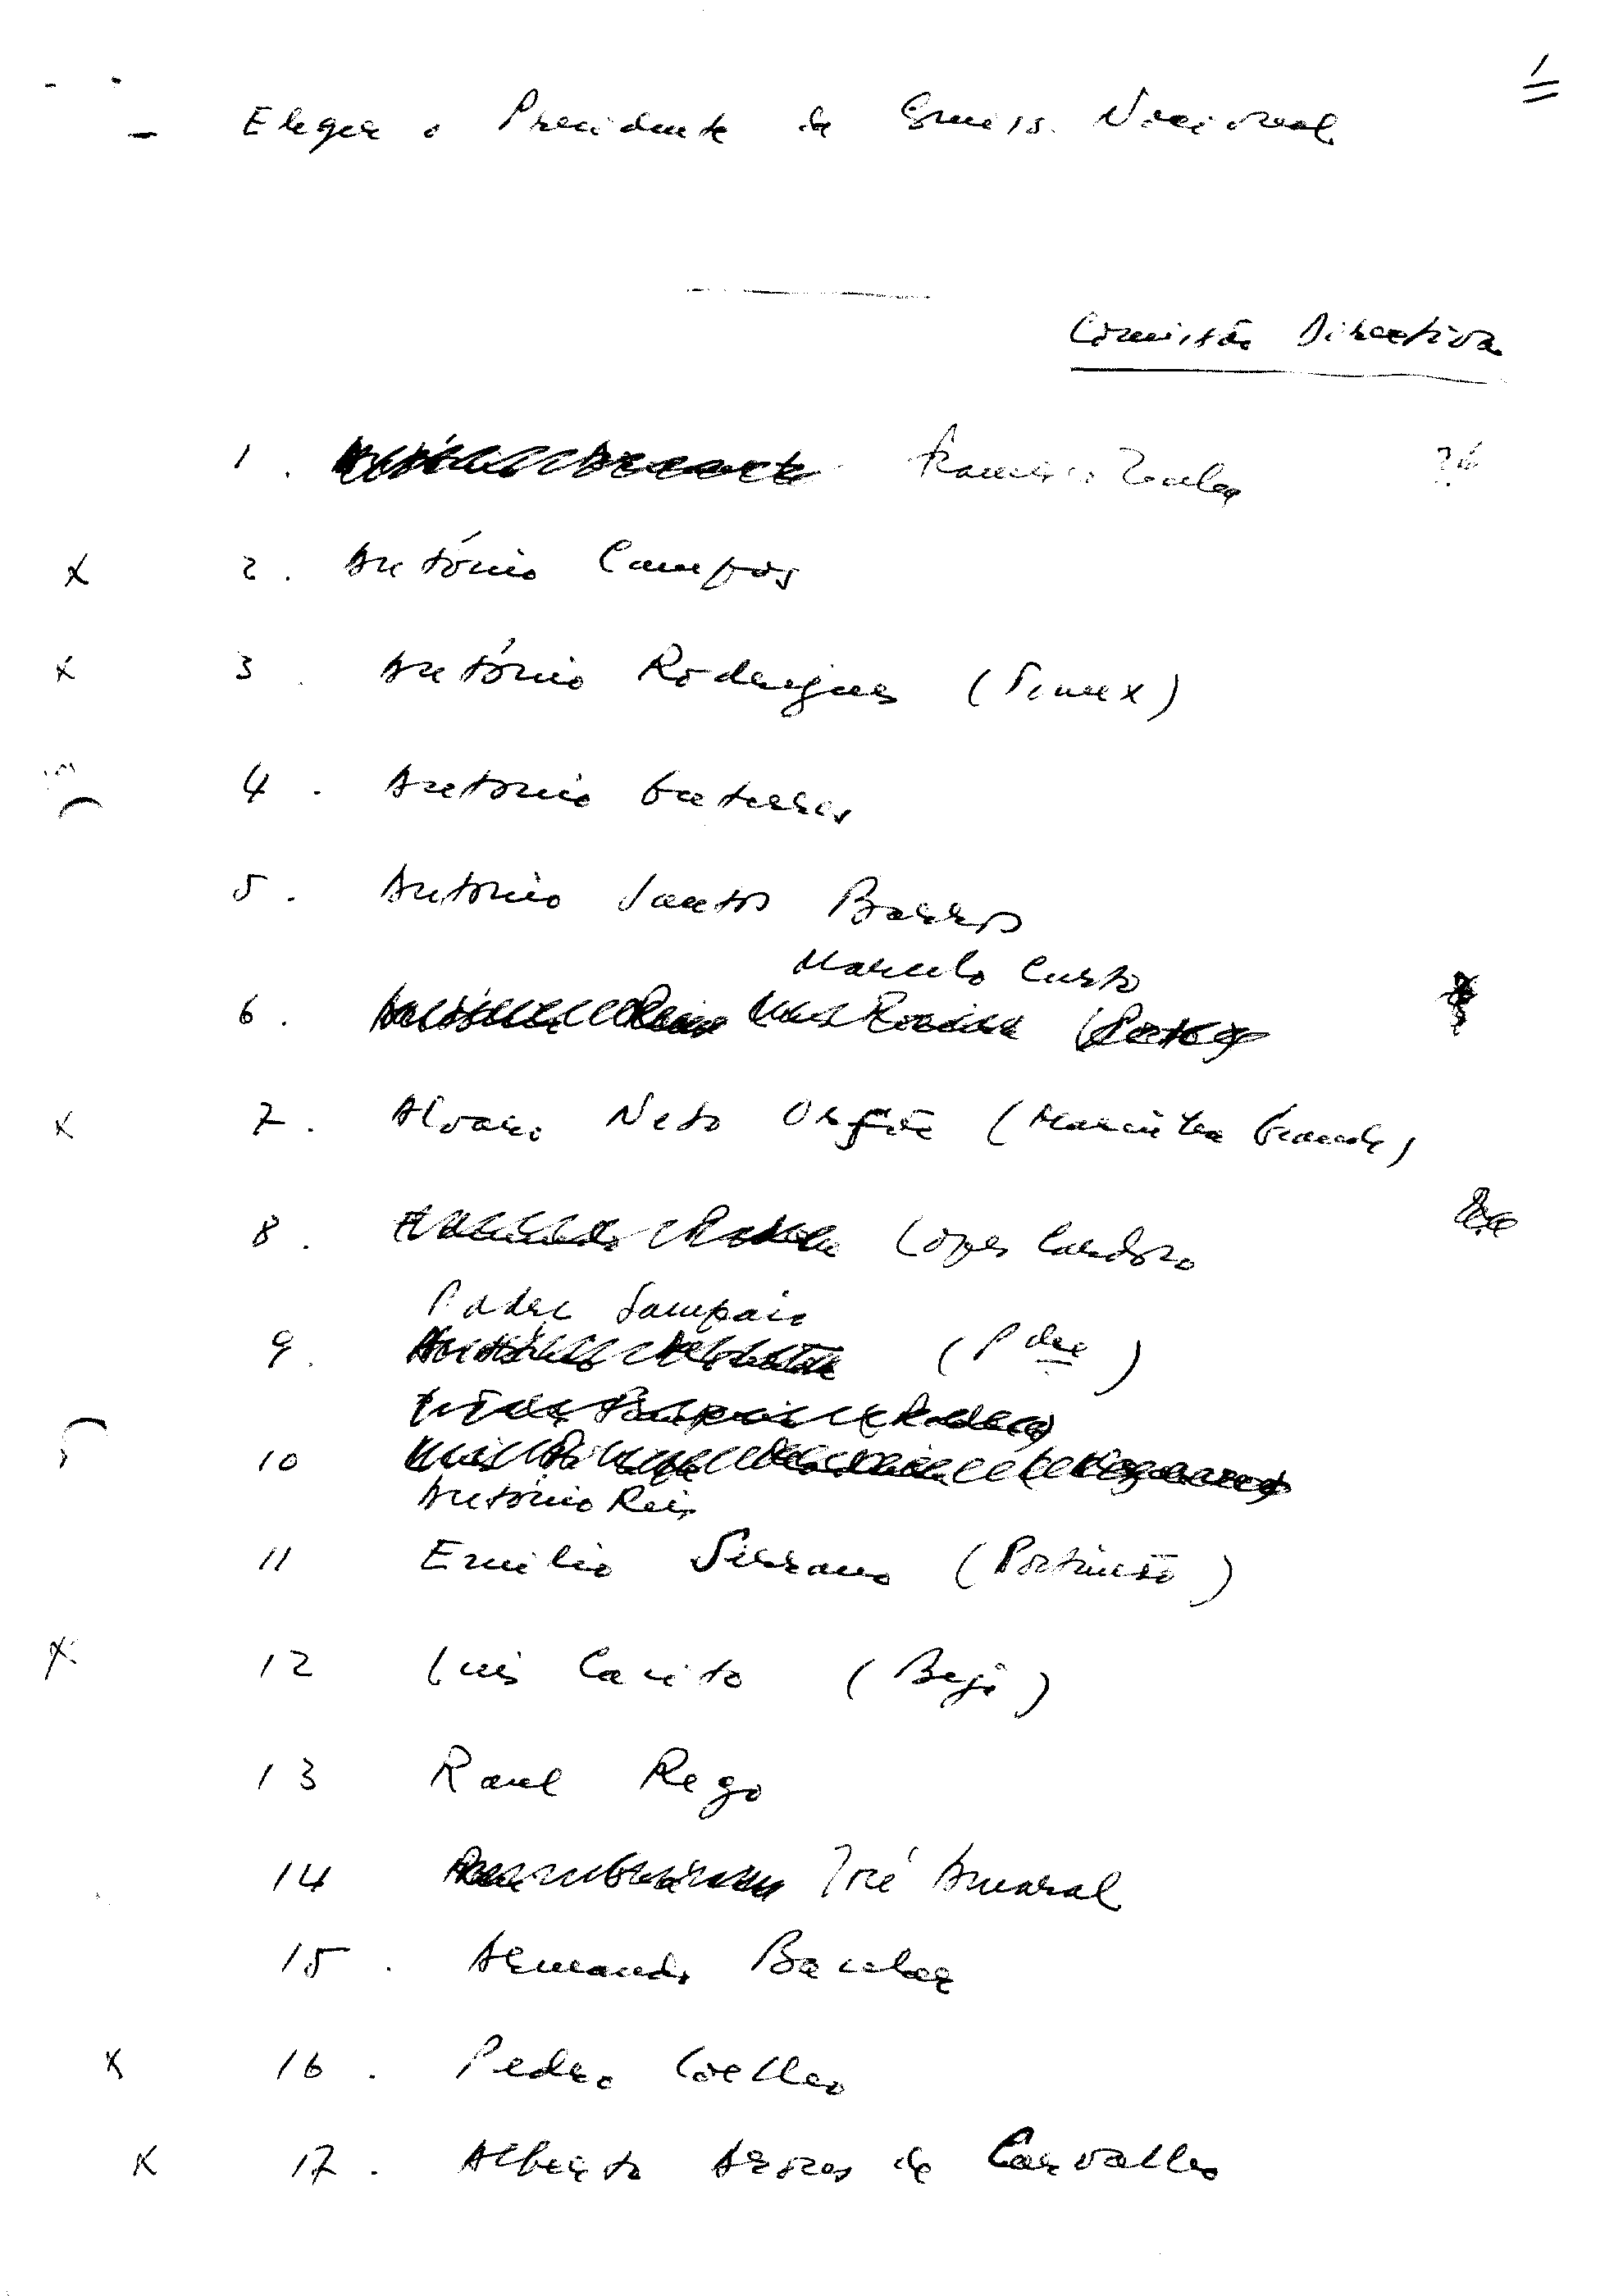 1
- Eleger o Presidente da Comiss. Nacional
Comissão Directiva
1. Francisco Zenha
X 2. António Campos
X 3. António Rodrigues (Timex)
4. Antonio Guterres
5. Antonio Santos Barros
Marcelo Curto
6.
X 7. Alvaro Neto Orfão (Marinha Grande)
8. Lopes Cardoso
Padre Sampaio
9. (Pdre)
10
António Reis
11 Emilio Serrano (Portimão)
X 12 Luis Caeito (Beja)
13 Raul Rego
14 José Amaral
15. Armando Bacelar
X 16. Pedro Coelho
X 17. Alberto Arons de Carvalho